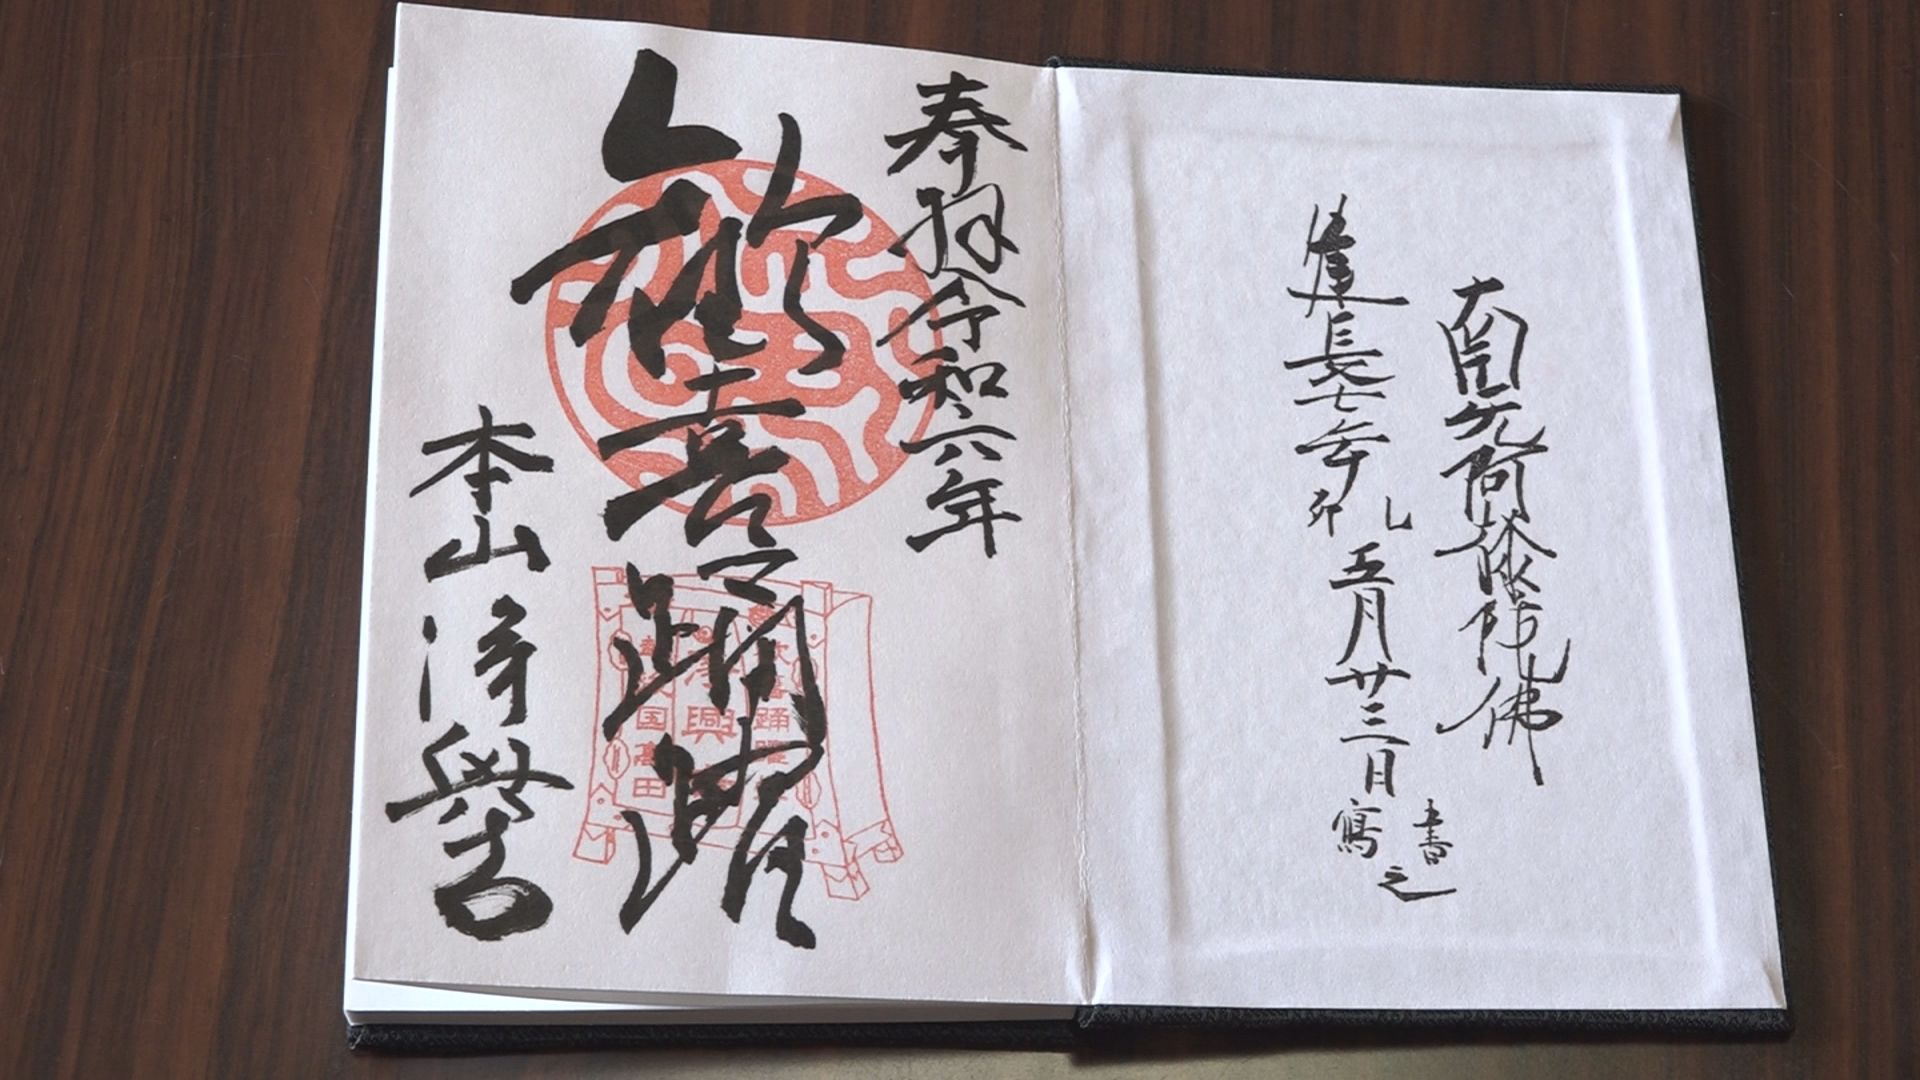 南无阿弥陀佛
建長七年乙卯五月廿三日書寫之
奉拝令和六年
歓喜踊躍
本山浄興寺
喜踊躍
興
国高田